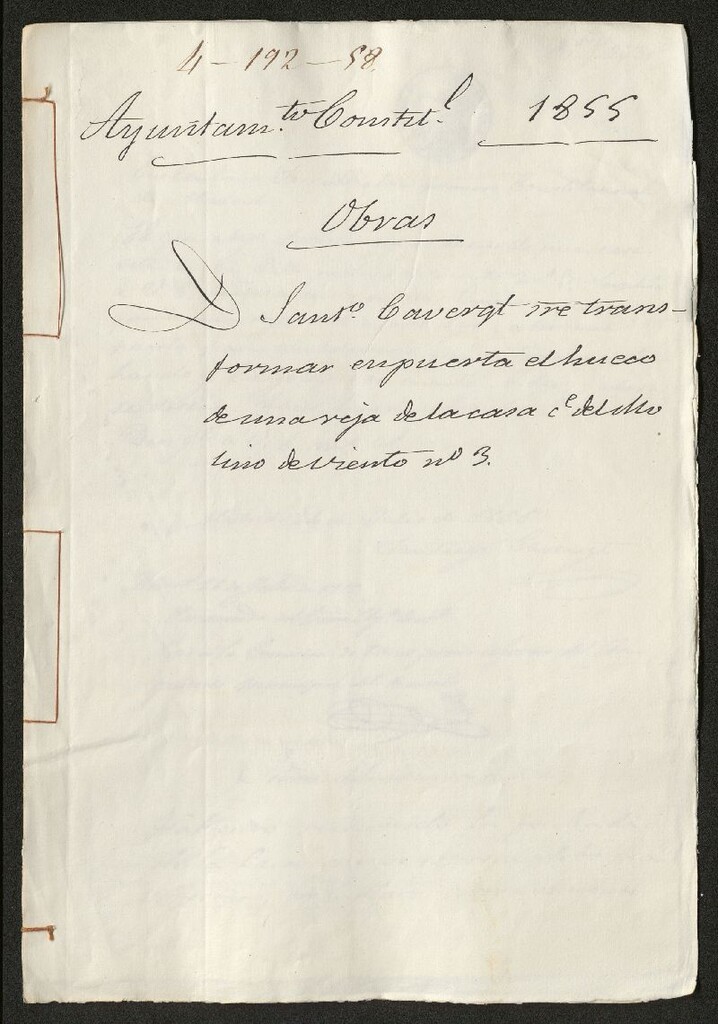 4 - 192 - 58
Ayuntam.to Constit.l 1855
Obras
D Sant.o Cavergt sre trans-
formar en puerta el hueco
de una reja de la casa c.e del Mo
lino de Viento n.o 3.